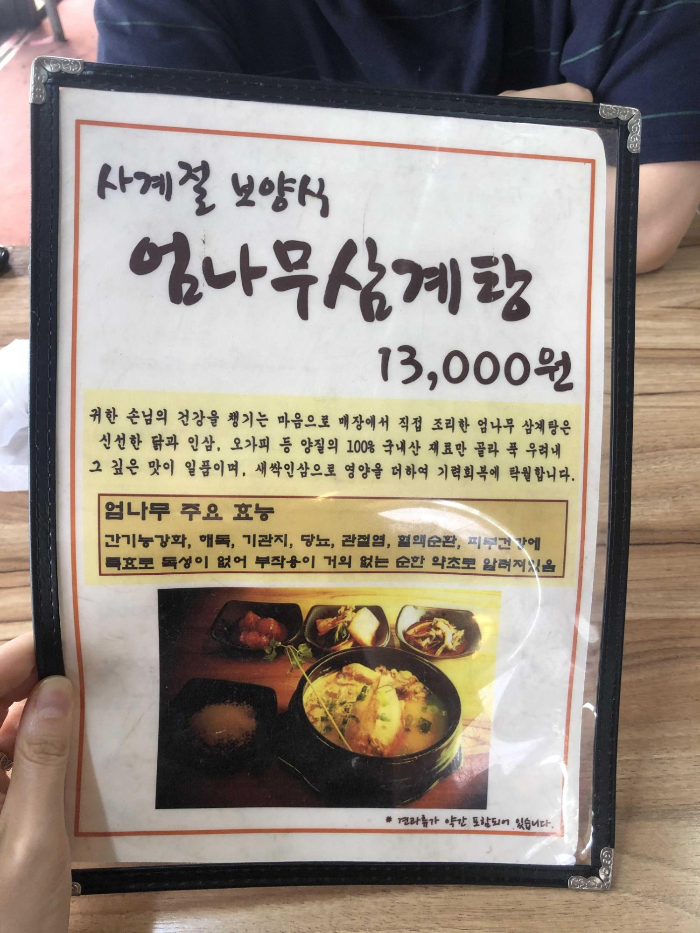 사계절 보양식
엄나무삼계탕
13,000원
귀한 손님의 건강을 챙기는 마음으로 매장에서 직접 조리한 엄나무 삼계탕은
신선한 닭과 인삼, 오가피 등 양질의 100% 국내산 재료만 골라 푹 우려내
그 깊은 맛이 일품이며, 새싹인삼으로 영양을 더하여 기력회복에 탁월합니다.
엄나무 주요 효능
간기능강화, 해독, 기관지, 당뇨, 관절염, 혈액순환, 피부건강에
특효로 독성이 없어 부작용이 거의 없는 순한 약초로 알려져있음
* 견과류가 약간 포함되어 있습니다.